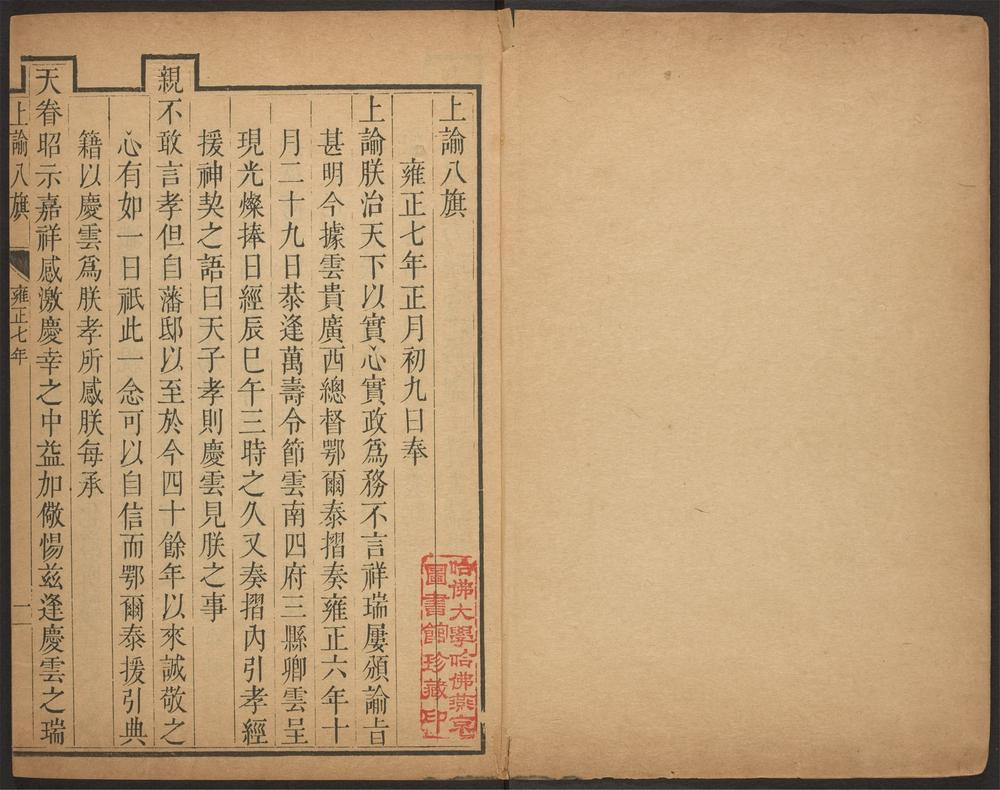 上諭八旗
雍正七年正月初九日奉
上諭朕治天下以實心實政爲務不言祥瑞屢頒諭旨
甚明今據雲貴廣西總督鄂爾泰摺奏雍正六年十
月二十九日恭逢萬壽令節雲南四府三縣卿雲呈
現光燦捧日經辰巳午三時之久又奏摺內引孝經
援神契之語曰天子孝則慶雲見朕之事
親不敢言孝但自藩邸以至於今四十餘年以來誠敬之
心有如一日祇此一念可以自信而鄂爾泰援引典
籍以慶雲爲朕孝所感朕每承
天眷昭示嘉祥感激慶幸之中益加儆惕茲逢慶雲之瑞
上諭八旗 雍正七年 一
哈佛大學哈佛燕京
圖書館珍藏印